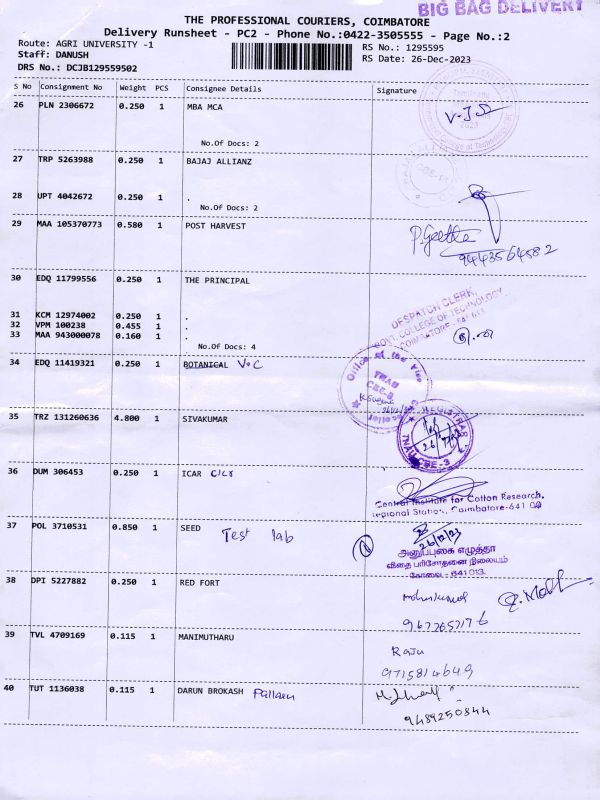 BIG BAG DELIVERY
THE PROFESSIONAL COURIERS, COIMBATORE
Delivery Runsheet - PC2 - Phone No.:0422-3505555 - Page No.:2
Route: AGRI UNIVERSITY -1
RS No.: 1295595
Staff: DANUSH
RS Date: 26-Dec-2023
DRS No.: DCJB129559502
S No Consignment No Weight PCS Consignee Details Signature
26 PLN 2306672 0.250 1 MBA MCA
No.Of Docs: 2
27 TRP 5263988 0.250 1 BAJAJ ALLIANZ
28 UPT 4042672 0.250 1 .
No.Of Docs: 2
29 MAA 105370773 0.580 1 POST HARVEST
P. Geetha
9443564582
30 EDQ 11799556 0.250 1 THE PRINCIPAL
DESPATCH CLERK,
GOVT. COLLEGE OF TECHNOLOGY
COIMBATORE - 641 013
31 KCM 12974002 0.250 1 .
32 VPM 100238 0.455 1 .
33 MAA 943000078 0.160 1 .
No.Of Docs: 4
34 EDQ 11419321 0.250 1 BOTANICAL V.C
Office of the Vice
TNAU
CBE-3
35 TRZ 131260636 4.800 1 SIVAKUMAR
REGISTRAR
TNAU, CBE-3
36 DUM 306453 0.250 1 ICAR CICR
Central Institute for Cotton Research,
Regional Station, Coimbatore-641 00
37 POL 3710531 0.850 1 SEED Test lab
26/12/23
விதை பரிசோதனை நிலையம்
கோவை - 641 013.
38 DPI 5227882 0.250 1 RED FORT
39 TVL 4709169 0.115 1 MANIMUTHARU
Raju
9715814649
40 TUT 1136038 0.115 1 DARUN BROKASH
9489250844